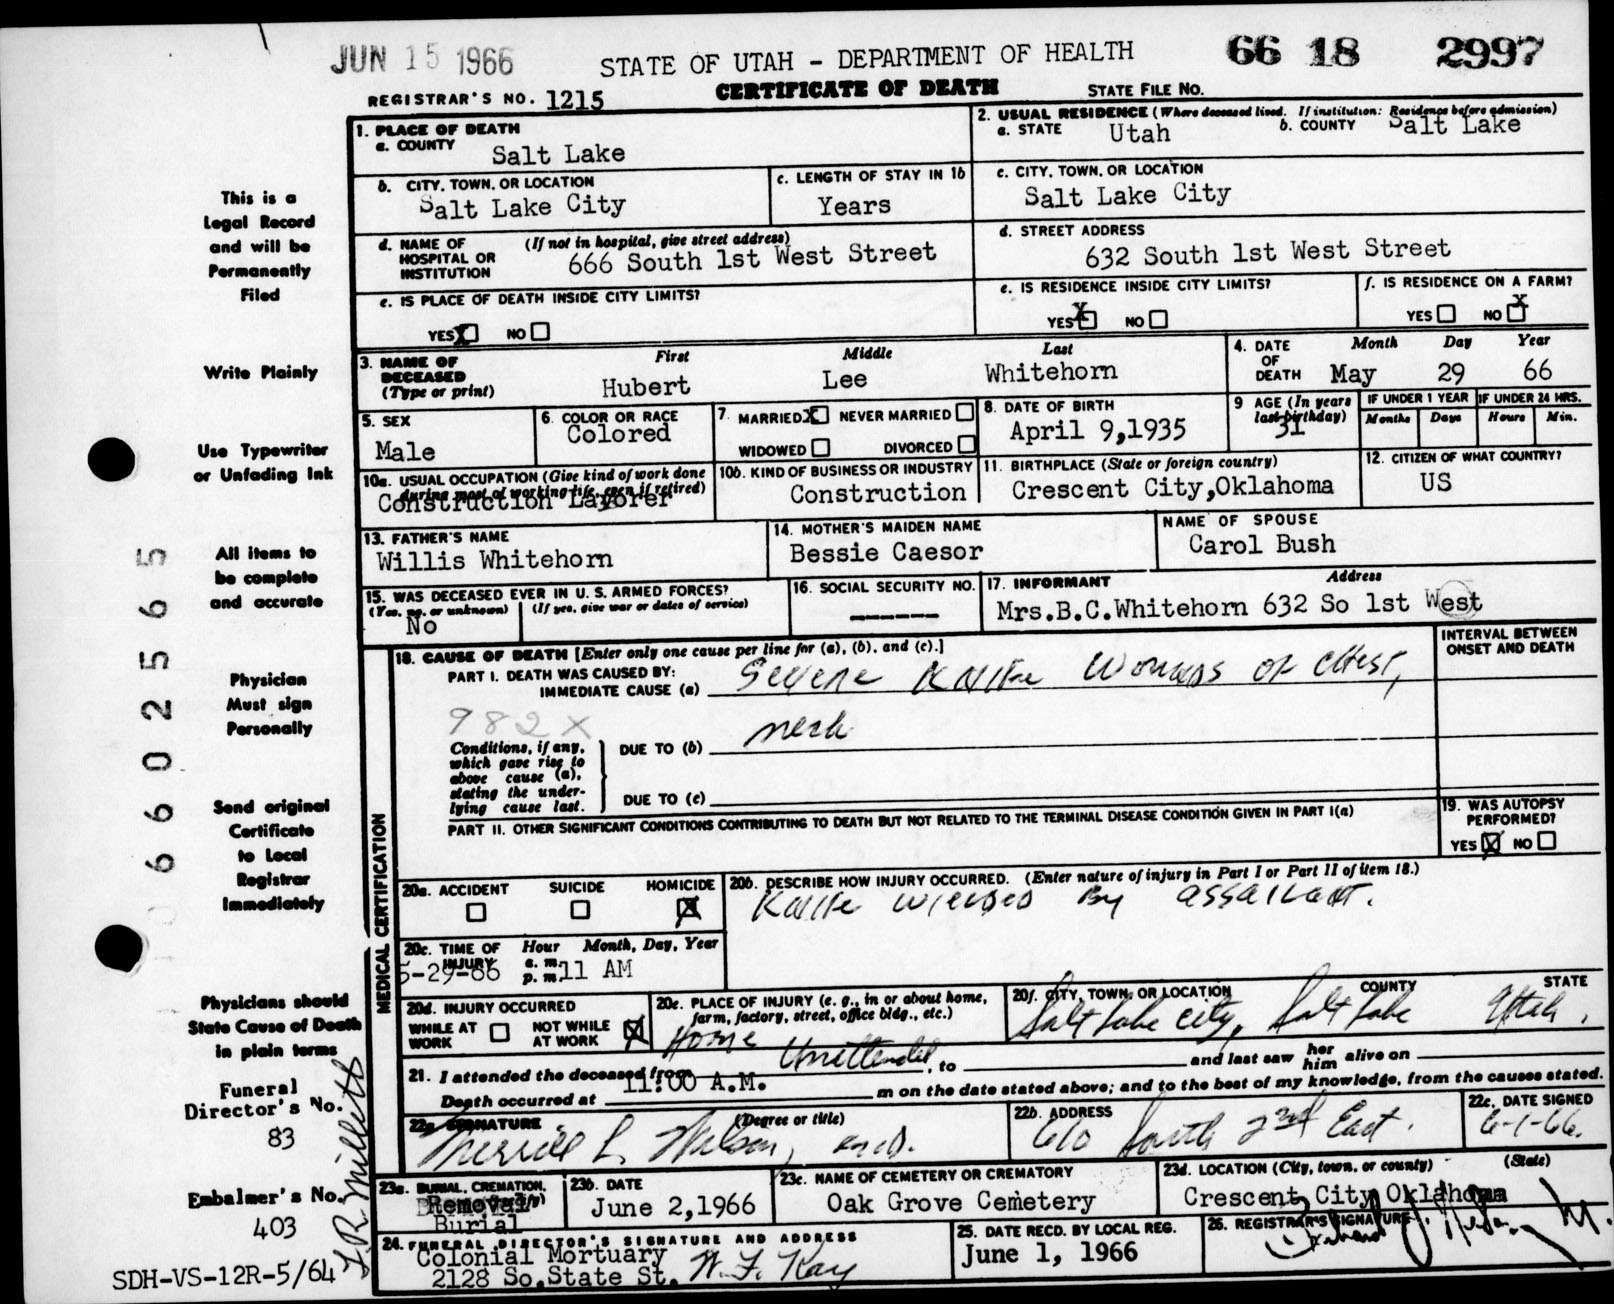 JUN 15 1966
STATE OF UTAH - DEPARTMENT OF HEALTH
66 18 2997
REGISTRAR'S NO. 1215
CERTIFICATE OF DEATH
STATE FILE NO.
1. PLACE OF DEATH
a. COUNTY
Salt Lake
2. USUAL RESIDENCE (Where deceased lived. If institution: Residence before admission)
a. STATE Utah
b. COUNTY Salt Lake
b. CITY, TOWN, OR LOCATION
Salt Lake City
c. LENGTH OF STAY IN 1b
Years
c. CITY, TOWN, OR LOCATION
Salt Lake City
d. NAME OF HOSPITAL OR INSTITUTION
(If not in hospital, give street address)
666 South 1st West Street
d. STREET ADDRESS
632 South 1st West Street
e. IS PLACE OF DEATH INSIDE CITY LIMITS?
YES X NO
e. IS RESIDENCE INSIDE CITY LIMITS?
YES X NO
f. IS RESIDENCE ON A FARM?
YES NO X
3. NAME OF DECEASED
(Type or print)
First Middle Last
Hubert Lee Whitehorn
4. DATE OF DEATH
Month Day Year
May 29 66
5. SEX
Male
6. COLOR OR RACE
Colored
7. MARRIED X NEVER MARRIED
WIDOWED DIVORCED
8. DATE OF BIRTH
April 9,1935
9 AGE (In years last birthday)
31
IF UNDER 1 YEAR
Months Days
IF UNDER 24 HRS.
Hours Min.
10a. USUAL OCCUPATION (Give kind of work done during most of working life, even if retired)
Construction Layorer
10b. KIND OF BUSINESS OR INDUSTRY
Construction
11. BIRTHPLACE (State or foreign country)
Crescent City,Oklahoma
12. CITIZEN OF WHAT COUNTRY?
US
13. FATHER'S NAME
Willis Whitehorn
14. MOTHER'S MAIDEN NAME
Bessie Caesor
NAME OF SPOUSE
Carol Bush
15. WAS DECEASED EVER IN U. S. ARMED FORCES?
(Yes, no, or unknown) (If yes, give war or dates of service)
No
16. SOCIAL SECURITY NO.
------
17. INFORMANT Address
Mrs.B.C.Whitehorn 632 So 1st West
18. CAUSE OF DEATH [Enter only one cause per line for (a), (b), and (c).]
INTERVAL BETWEEN ONSET AND DEATH
PART I. DEATH WAS CAUSED BY:
IMMEDIATE CAUSE (a) Severe Knife Wounds of chest,
982X
neck
Conditions, if any, which gave rise to above cause (a), stating the underlying cause last.
DUE TO (b)
DUE TO (c)
PART II. OTHER SIGNIFICANT CONDITIONS CONTRIBUTING TO DEATH BUT NOT RELATED TO THE TERMINAL DISEASE CONDITION GIVEN IN PART I(a)
19. WAS AUTOPSY PERFORMED?
YES X NO
20a. ACCIDENT SUICIDE HOMICIDE
X
20b. DESCRIBE HOW INJURY OCCURRED. (Enter nature of injury in Part I or Part II of item 18.)
Knife wielded By assailant.
20c. TIME OF INJURY Hour Month, Day, Year
a. m.
p. m.
5-29-66 11 AM
20d. INJURY OCCURRED
WHILE AT WORK NOT WHILE AT WORK X
20e. PLACE OF INJURY (e. g., in or about home, farm, factory, street, office bldg., etc.)
Home
20f. CITY, TOWN, OR LOCATION COUNTY STATE
Salt Lake City, Salt Lake Utah.
21. I attended the deceased from Unattended, to and last saw her him alive on
Death occurred at 11:00 A.M. m on the date stated above; and to the best of my knowledge, from the causes stated.
22a SIGNATURE (Degree or title)
Merrill L. Wilson, m.d.
22b. ADDRESS
610 South 2nd East.
22c. DATE SIGNED
6-1-66.
23a. BURIAL, CREMATION,
Removal
Burial
23b. DATE
June 2,1966
23c. NAME OF CEMETERY OR CREMATORY
Oak Grove Cemetery
23d. LOCATION (City, town, or county) (State)
Crescent City,Oklahoma
24. FUNERAL DIRECTOR'S SIGNATURE AND ADDRESS
Colonial Mortuary
2128 So.State St. W. F. Kay
25. DATE RECD. BY LOCAL REG.
June 1, 1966
26. REGISTRAR'S SIGNATURE
MEDICAL CERTIFICATION
This is a
Legal Record
and will be
Permanently
Filed
Write Plainly
Use Typewriter
or Unfading Ink
All items to
be complete
and accurate
Physician
Must sign
Personally
Send original
Certificate
to Local
Registrar
Immediately
Physicians should
State Cause of Death
in plain terms
Funeral
Director's No.
83
Embalmer's No.
403
J.R. Millett
SDH-VS-12R-5/64
66025565